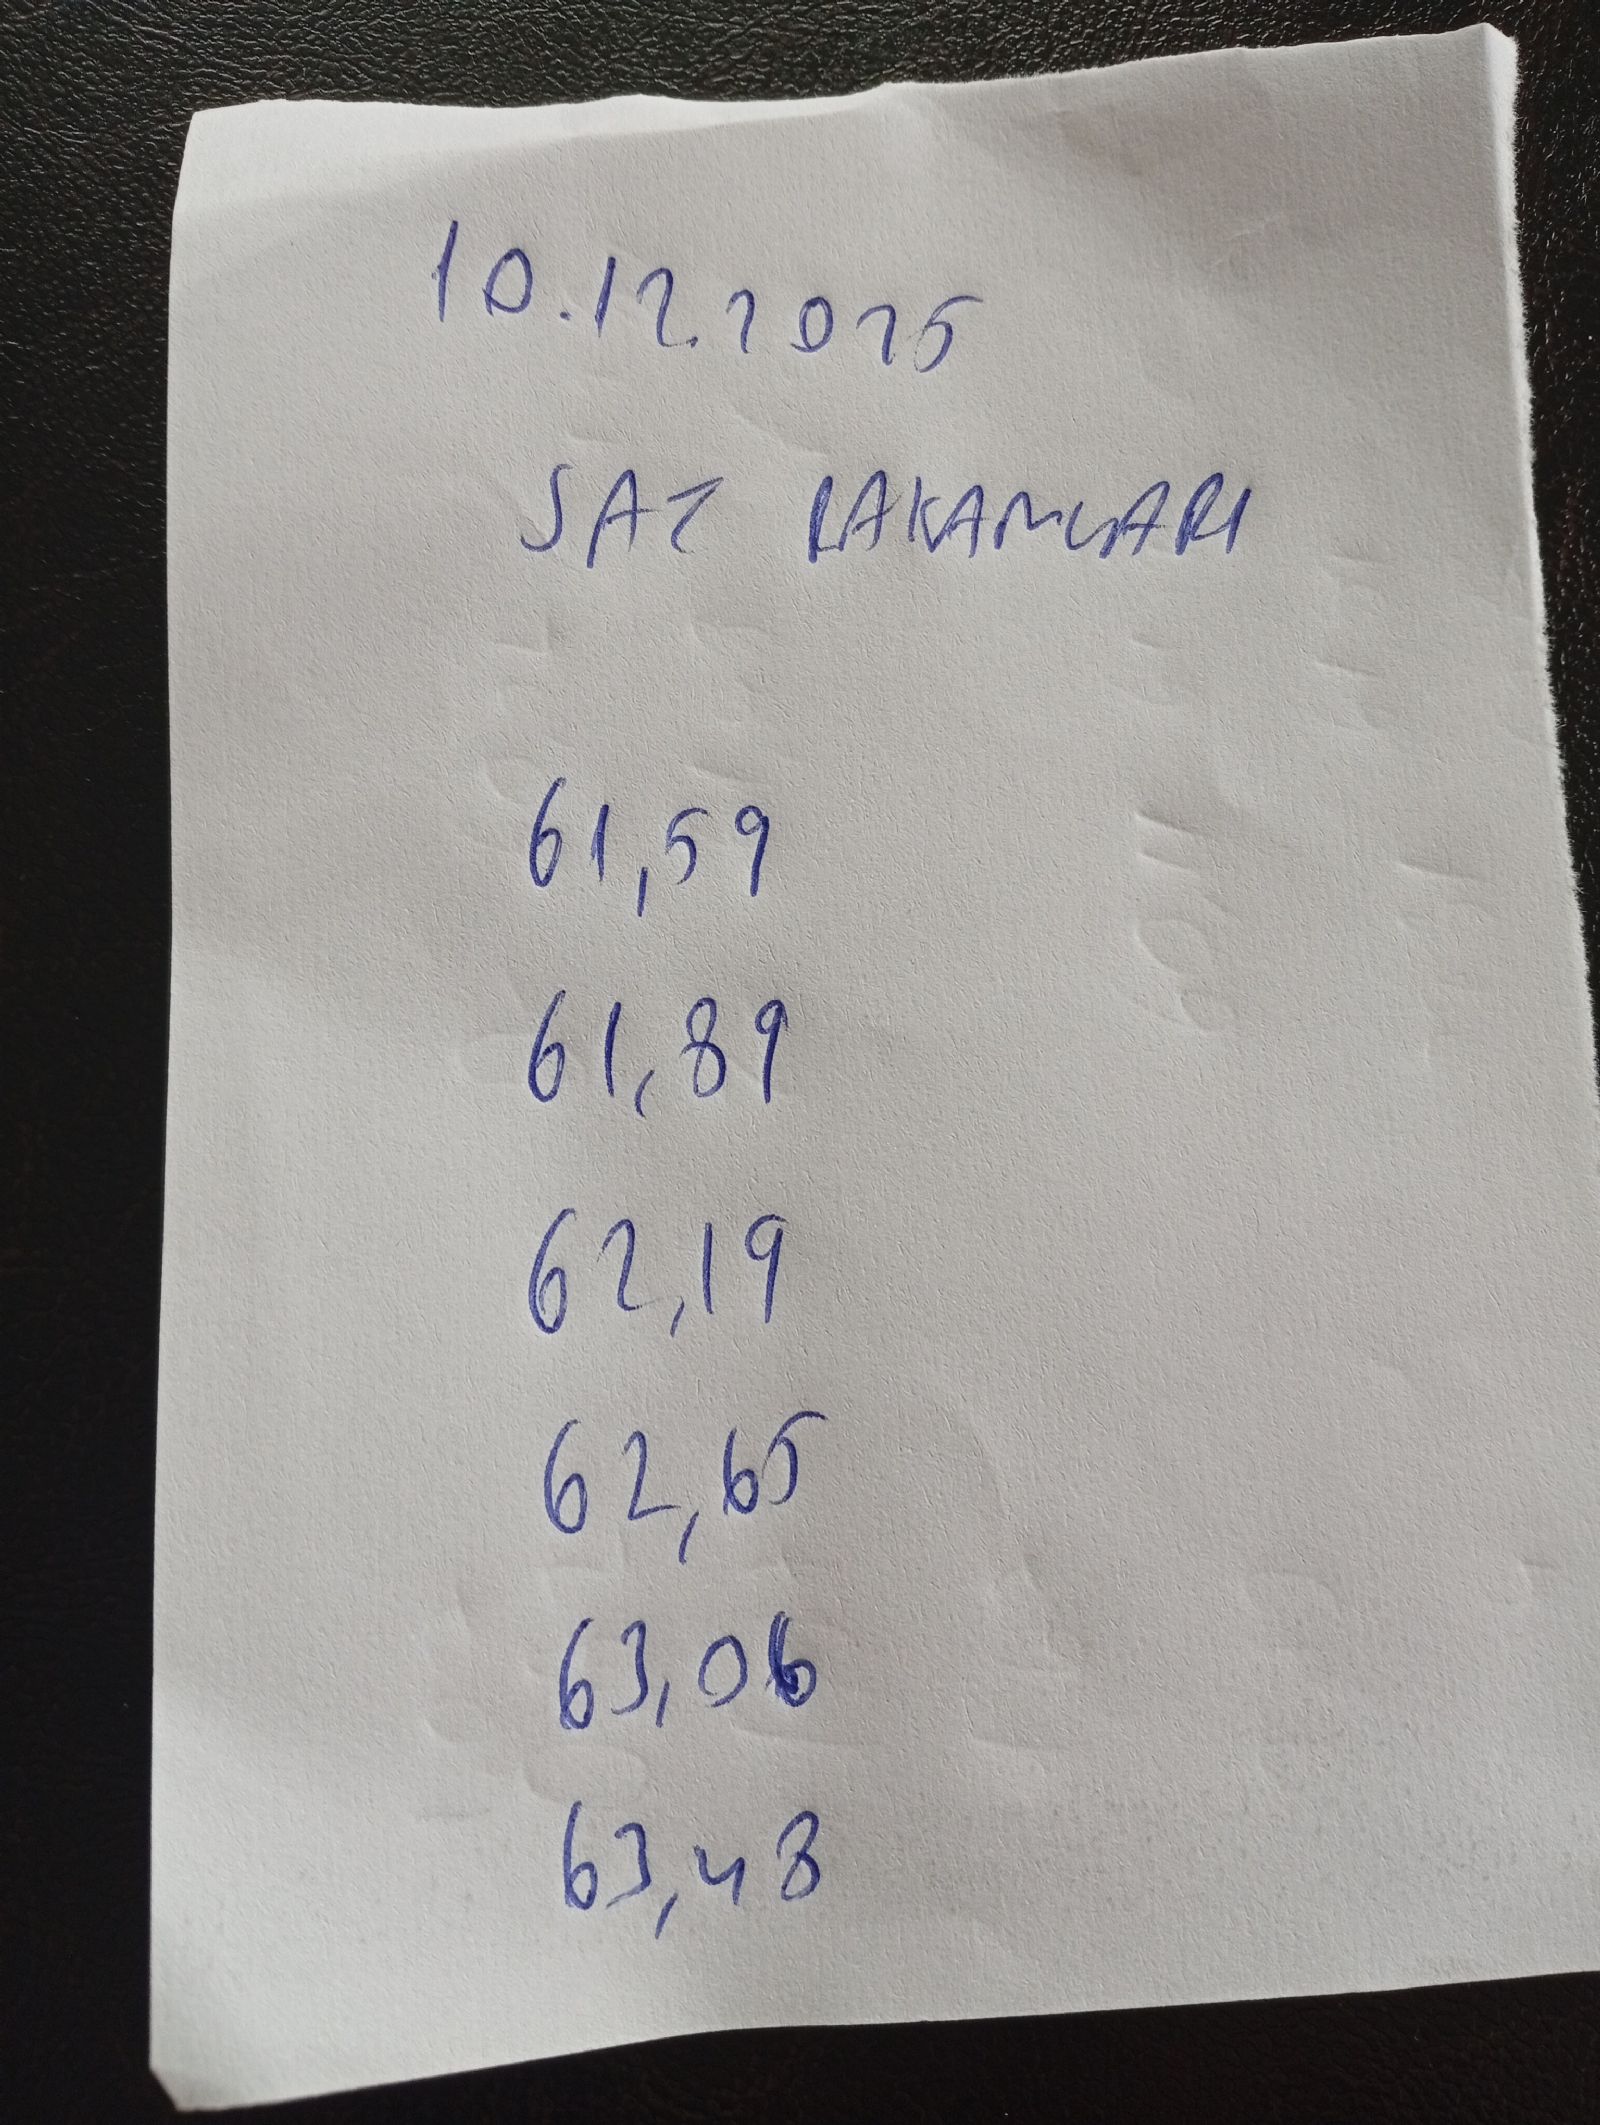 10.12.2025
SAT RAKAMLARI
61,59
61,89
62,19
62,65
63,06
63,48